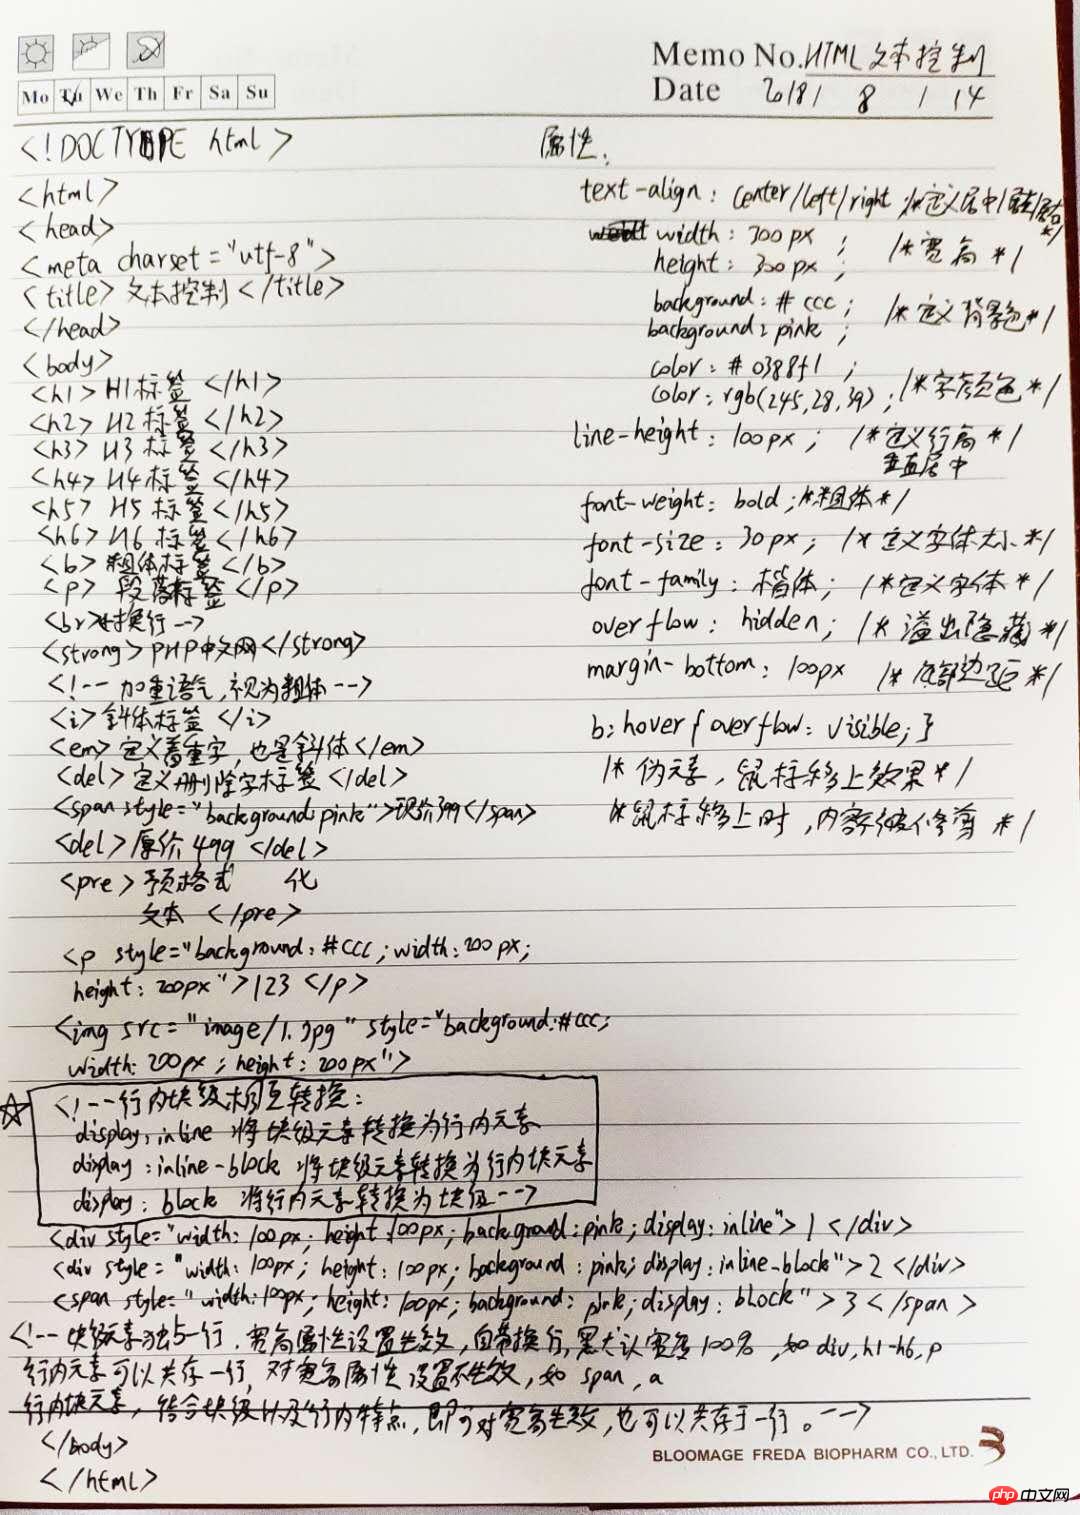 Memo No. HTML 文本控制
Mo Tu We Th Fr Sa Su
Date 2018 / 8 / 14
<!DOCTYPE html>
<html>
<head>
<meta charset="utf-8">
<title>文本控制</title>
</head>
<body>
<h1>H1标签</h1>
<h2>H2标签</h2>
<h3>H3标签</h3>
<h4>H4标签</h4>
<h5>H5标签</h5>
<h6>H6标签</h6>
<b>粗体标签</b>
<p>段落标签</p>
<br>换行-->
<strong>PHP中文网</strong>
<!--加重语气,视为粗体-->
<i>斜体标签</i>
<em>定义着重字,也是斜体</em>
<del>定义删除字标签</del>
<span style="background:pink">现价399</span>
<del>原价499</del>
<pre>预格式 化
文本</pre>
<p style="background:#ccc;width:200px;
height:200px">123</p>
<img src="image/1.jpg" style="background:#ccc;
width:200px;height:200px">
<!--行内块级相互转换:
display:inline 将块级元素转换为行内元素
display:inline-block 将块级元素转换为行内块元素
display:block 将行内元素转换为块级-->
<div style="width:100px;height:100px;background:pink;display:inline">1</div>
<div style="width:100px;height:100px;background:pink;display:inline-block">2</div>
<span style="width:100px;height:100px;background:pink;display:block">3</span>
<!--块级元素独占一行,宽高属性设置生效,自带换行,默认宽度100%,如div,h1-h6,p
行内元素可以共存一行,对宽高属性设置不生效,如span,a
行内块元素,结合块级以及行内特点,即可对宽高生效,也可以共存于一行。-->
</body>
</html>
属性:
text-align:center/left/right /*定义居中/居左/居右*/
width:300px;
height:300px; /*宽高*/
background:#ccc;
background:pink; /*定义背景色*/
color:#0388f1;
color:rgb(245,28,39); /*字颜色*/
line-height:100px; /*定义行高*/
垂直居中
font-weight:bold;/*粗体*/
font-size:30px; /*定义字体大小*/
font-family:楷体; /*定义字体*/
overflow:hidden; /*溢出隐藏*/
margin-bottom:100px /*底部边距*/
b:hover{overflow:visible;}
/*伪元素,鼠标移上效果*/
/*鼠标移上时,内容被修剪*/
BLOOMAGE FREDA BIOPHARM CO., LTD.
php 中文网